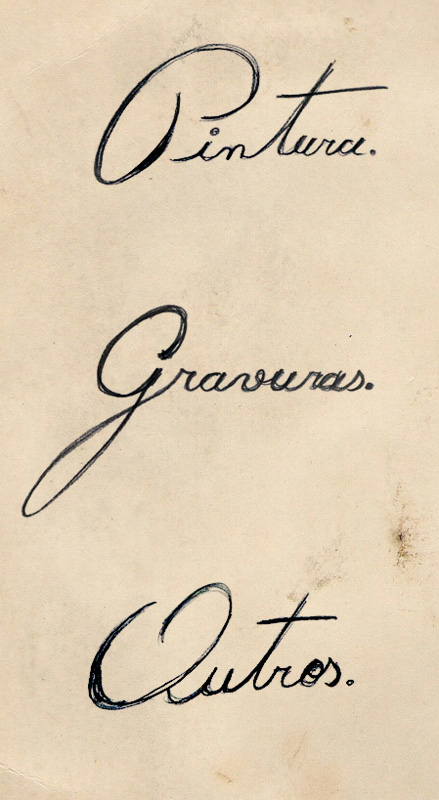 Pintura.
Gravuras.
Outros.